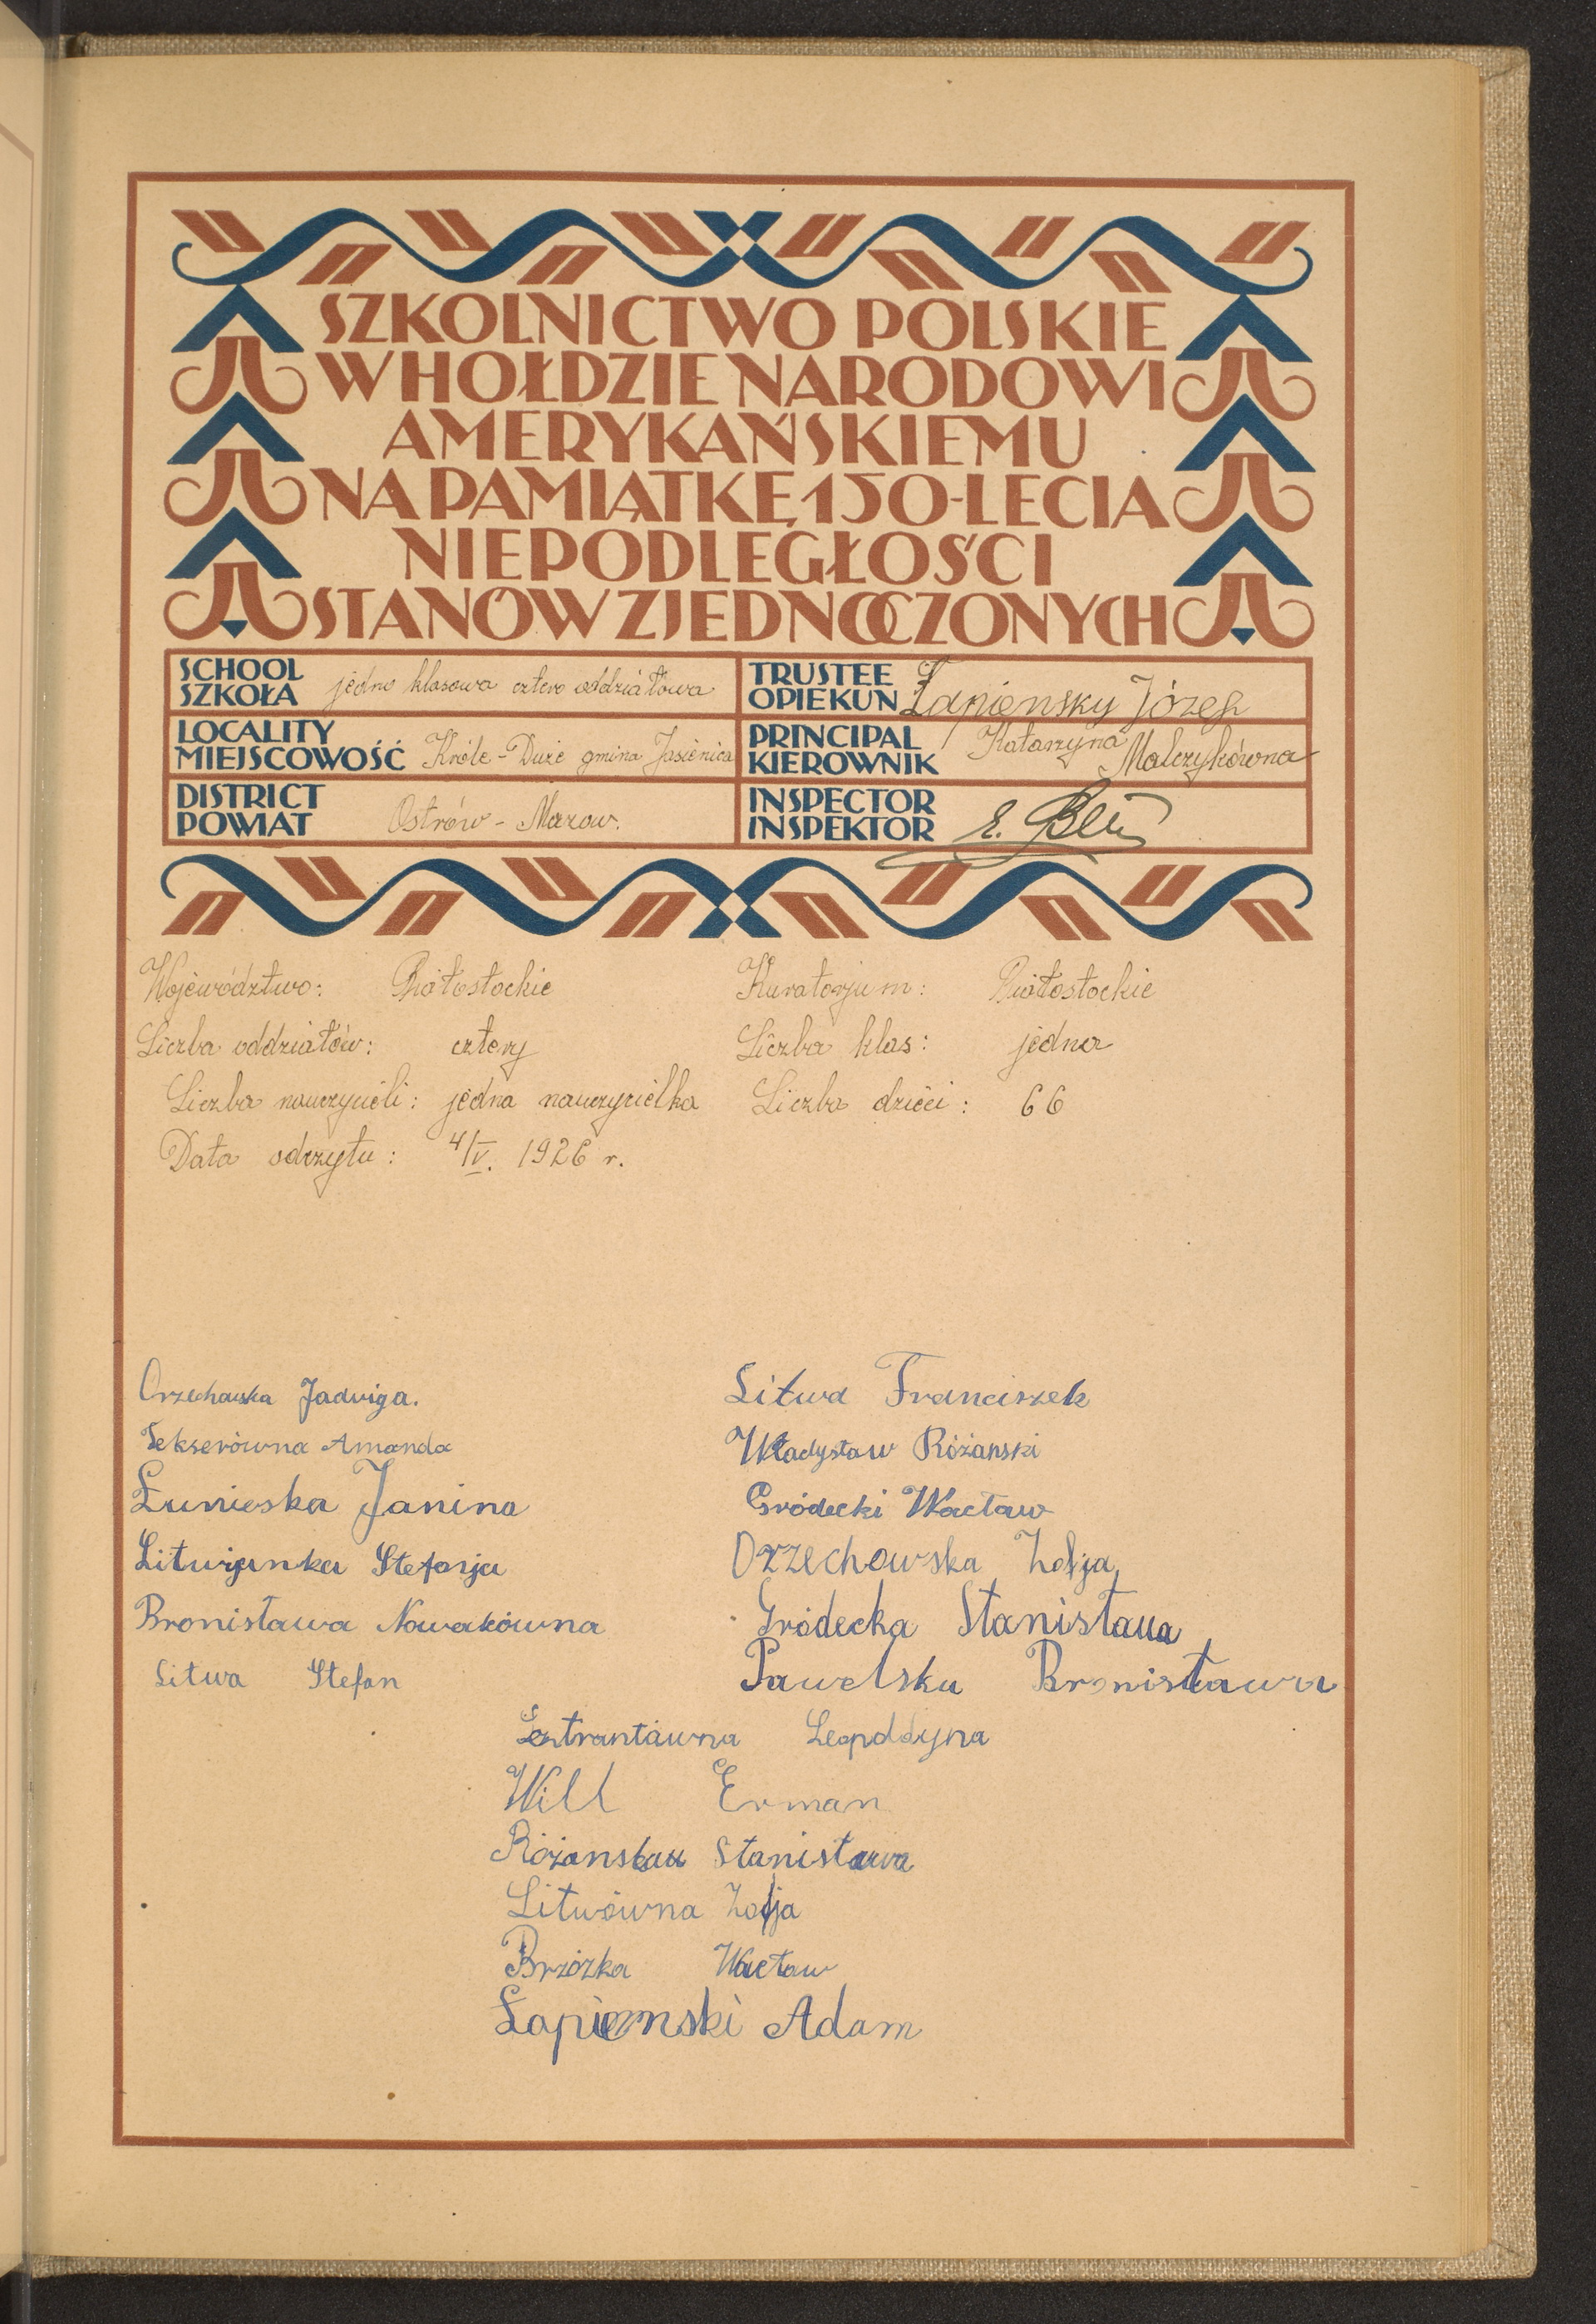 SZKOLNICTWO POLSKIE
W HOŁDZIE NARODOWI
AMERYKAŃSKIEMU
NA PAMIĄTKĘ 150-LECIA
NIEPODLEGŁOŚCI
STANÓW ZJEDNOCZONYCH
SCHOOL
SZKOŁA jedno klasowa cztero oddziałowa
TRUSTEE
OPIEKUN Łapiensky Józef
LOCALITY
MIEJSCOWOŚĆ Króle-Duże gmina Jasienica
PRINCIPAL
KIEROWNIK Katarzyna Malczykówna
DISTRICT
POWIAT Ostrów-Mazow.
INSPECTOR
INSPEKTOR E.
Województwo: Białostockie Kuratorjum: Białostockie
Liczba oddziałów: cztery Liczba klas: jedna
Liczba nauczycieli: jedna nauczycielka Liczba dzieci: 66
Data odczytu: 4/V. 1926 r.
Orzechowska Jadwiga.
Tekserówna Amanda
Łunieska Janina
Litwijanka Stefanja
Bronisława Nowakówna
Litwa Stefan
Litwa Franciszek
Władysław Różanski
Gródecki Wacław
Orzechowska Zofja
Gródecka Stanisława
Pawelska Bronisława
Leopoldyna
Will Erman
Różanska Stanisława
Litwówna Zofja
Brzózka Wacław
Łapienski Adam